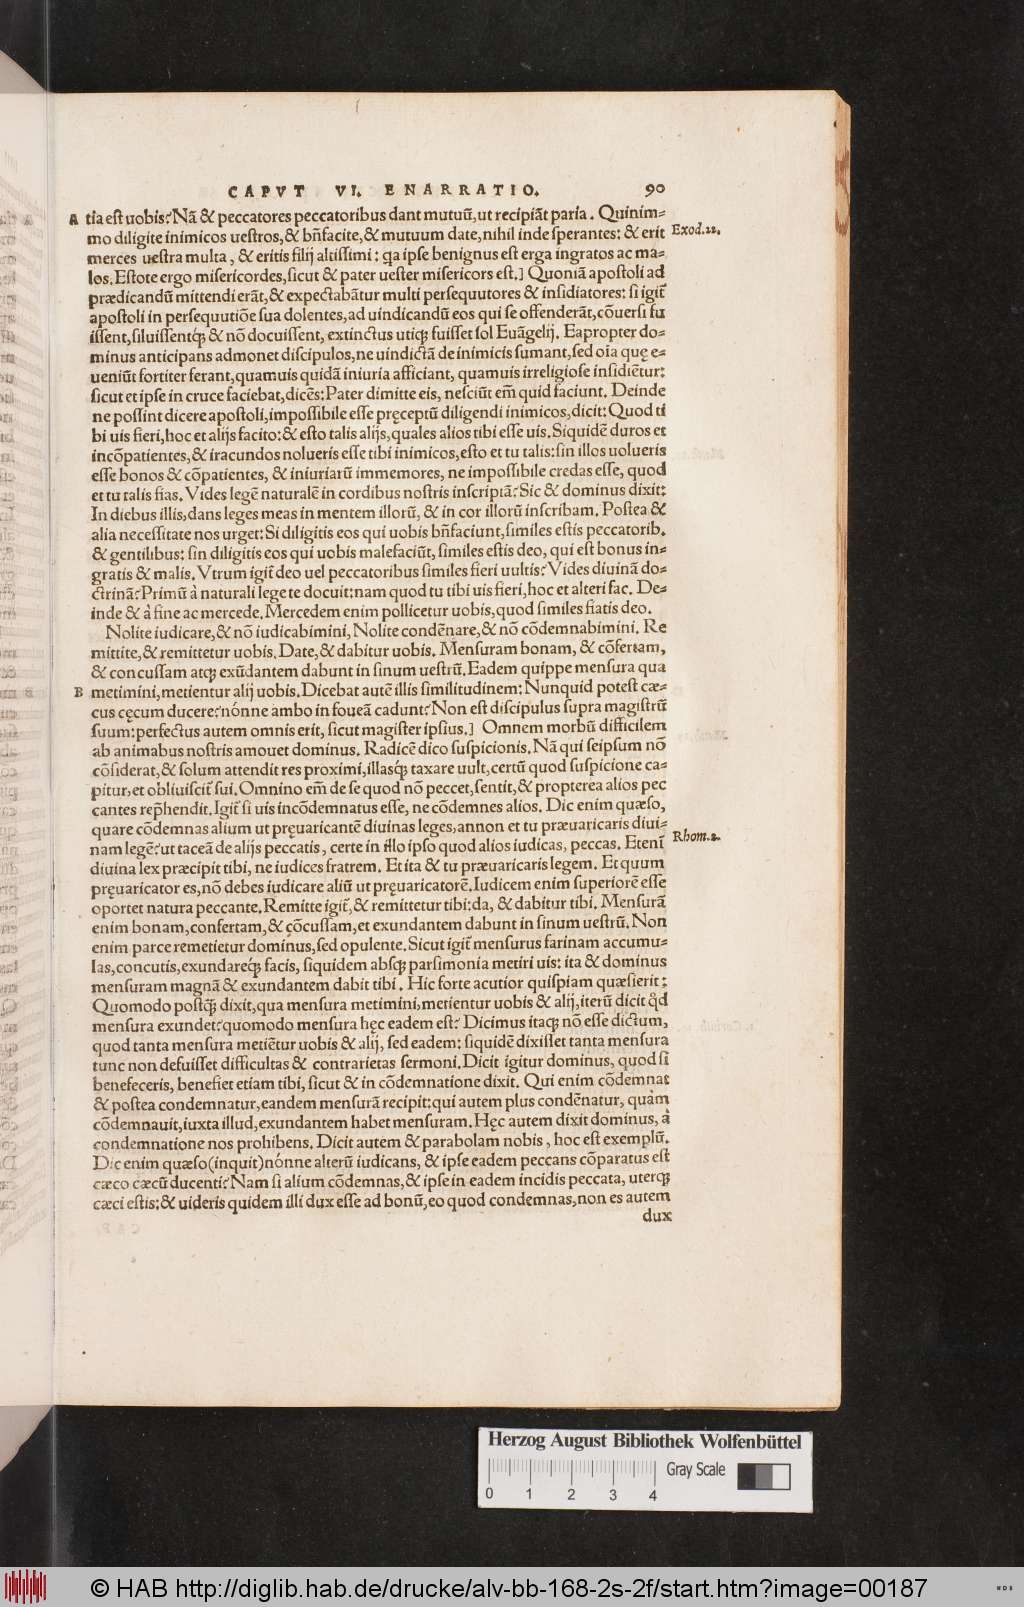 CAPVT VI. ENARRATIO. 90
A tia est uobis? Nã & peccatores peccatoribus dant mutuũ, ut recipiãt paria. Quinim=
mo diligite inimicos uestros, & bñfacite, & mutuum date, nihil inde sperantes: & erit Exod.22.
merces uestra multa, & eritis filij altissimi: qa ipse benignus est erga ingratos ac ma=
los. Estote ergo misericordes, sicut & pater uester misericors est.] Quoniã apostoli ad
prædicandũ mittendi erãt, & expectabãtur multi persequutores & insidiatores: si igit̃
apostoli in persequutiõe sua dolentes, ad uindicandũ eos qui se offenderãt, cõuersi fu
issent, siluissentq́; & nõ docuissent, extinctus utiq; fuisset sol Euãgelij. Eapropter do=
minus anticipans admonet discipulos, ne uindictã de inimicis sumant, sed oĩa quę e=
ueniũt fortiter ferant, quamuis quidã iniuria afficiant, quamuis irreligiose insidiẽtur:
sicut et ipse in cruce faciebat, dicẽs: Pater dimitte eis, nesciũt em̃ quid faciunt. Deinde
ne possint dicere apostoli, impossibile esse pręceptũ diligendi inimicos, dicit: Quod ti
bi uis fieri, hoc et alijs facito: & esto talis alijs, quales alios tibi esse uis. Siquidẽ duros et
incõpatientes, & iracundos nolueris esse tibi inimicos, esto et tu talis: sin illos uolueris
esse bonos & cõpatientes, & iniuriarũ immemores, ne impossibile credas esse, quod
et tu talis fias. Vides legẽ naturalẽ in cordibus nostris inscriptã? Sic & dominus dixit:
In diebus illis, dans leges meas in mentem illorũ, & in cor illorũ inscribam. Postea &
alia necessitate nos urget: Si diligitis eos qui uobis bñfaciunt, similes estis peccatorib.
& gentilibus: sin diligitis eos qui uobis malefaciũt, similes estis deo, qui est bonus in=
gratis & malis. Vtrum igit̃ deo uel peccatoribus similes fieri uultis? Vides diuinã do=
ctrinã? Primũ à naturali lege te docuit: nam quod tu tibi uis fieri, hoc et alteri fac. De=
inde & à fine ac mercede. Mercedem enim pollicetur uobis, quod similes fiatis deo.
Nolite iudicare, & nõ iudicabimini, Nolite condẽnare, & nõ cõdemnabimini. Re
mittite, & remittetur uobis. Date, & dabitur uobis. Mensuram bonam, & cõfertam,
& concussam atq; exũdantem dabunt in sinum uestrũ. Eadem quippe mensura qua
B metimini, metientur alij uobis. Dicebat autẽ illis similitudinem: Nunquid potest cæ=
cus cęcum ducere? nónne ambo in foueã cadunt? Non est discipulus supra magistrũ
suum: perfectus autem omnis erit, sicut magister ipsius.] Omnem morbũ difficilem
ab animabus nostris amouet dominus. Radicẽ dico suspicionis. Nã qui seipsum nõ
cõsiderat, & solum attendit res proximi, illasq́; taxare uult, certũ quod suspicione ca=
pitur, et obliuiscit̃ sui. Omnino em̃ de se quod nõ peccet, sentit, & propterea alios pec
cantes rep̃hendit. Igit̃ si uis incõdemnatus esse, ne cõdemnes alios. Dic enim quæso,
quare cõdemnas alium ut pręuaricantẽ diuinas leges, annon et tu præuaricaris diui=
nam legẽ? ut taceã de alijs peccatis, certe in illo ipso quod alios iudicas, peccas. Etenĩ Rhom.2.
diuina lex præcipit tibi, ne iudices fratrem. Et ita & tu præuaricaris legem. Et quum
pręuaricator es, nõ debes iudicare aliũ ut pręuaricatorẽ. Iudicem enim superiorẽ esse
oportet natura peccante. Remitte igit̃, & remittetur tibi: da, & dabitur tibi. Mensurã
enim bonam, confertam, & cõcussam, et exundantem dabunt in sinum uestrũ. Non
enim parce remetietur dominus, sed opulente. Sicut igit̃ mensurus farinam accumu=
las, concutis, exundareq́; facis, siquidem absq; parsimonia metiri uis: ita & dominus
mensuram magnã & exundantem dabit tibi. Hic forte acutior quispiam quæsierit:
Quomodo postq̃; dixit, qua mensura metimini, metientur uobis & alij, iterũ dicit q̃d
mensura exundet? quomodo mensura hęc eadem est? Dicimus itaq; nõ esse dictum,
quod tanta mensura metiẽtur uobis & alij, sed eadem: siquidẽ dixisset tanta mensura
tunc non defuisset difficultas & contrarietas sermoni. Dicit igitur dominus, quod si
benefeceris, benefiet etiam tibi, sicut & in cõdemnatione dixit. Qui enim cõdemnat
& postea condemnatur, eandem mensurã recipit: qui autem plus condẽnatur, quàm
cõdemnauit, iuxta illud, exundantem habet mensuram. Hęc autem dixit dominus, à
condemnatione nos prohibens. Dicit autem & parabolam nobis, hoc est exemplũ.
Dic enim quæso (inquit) nónne alterũ iudicans, & ipse eadem peccans cõparatus est
cæco cæcũ ducenti? Nam si alium cõdemnas, & ipse in eadem incidis peccata, uterq;
cæci estis: & uideris quidem illi dux esse ad bonũ, eo quod condemnas, non es autem
dux
Herzog August Bibliothek Wolfenbüttel
Gray Scale
0 1 2 3 4
© HAB http://diglib.hab.de/drucke/alv-bb-168-2s-2f/start.htm?image=00187